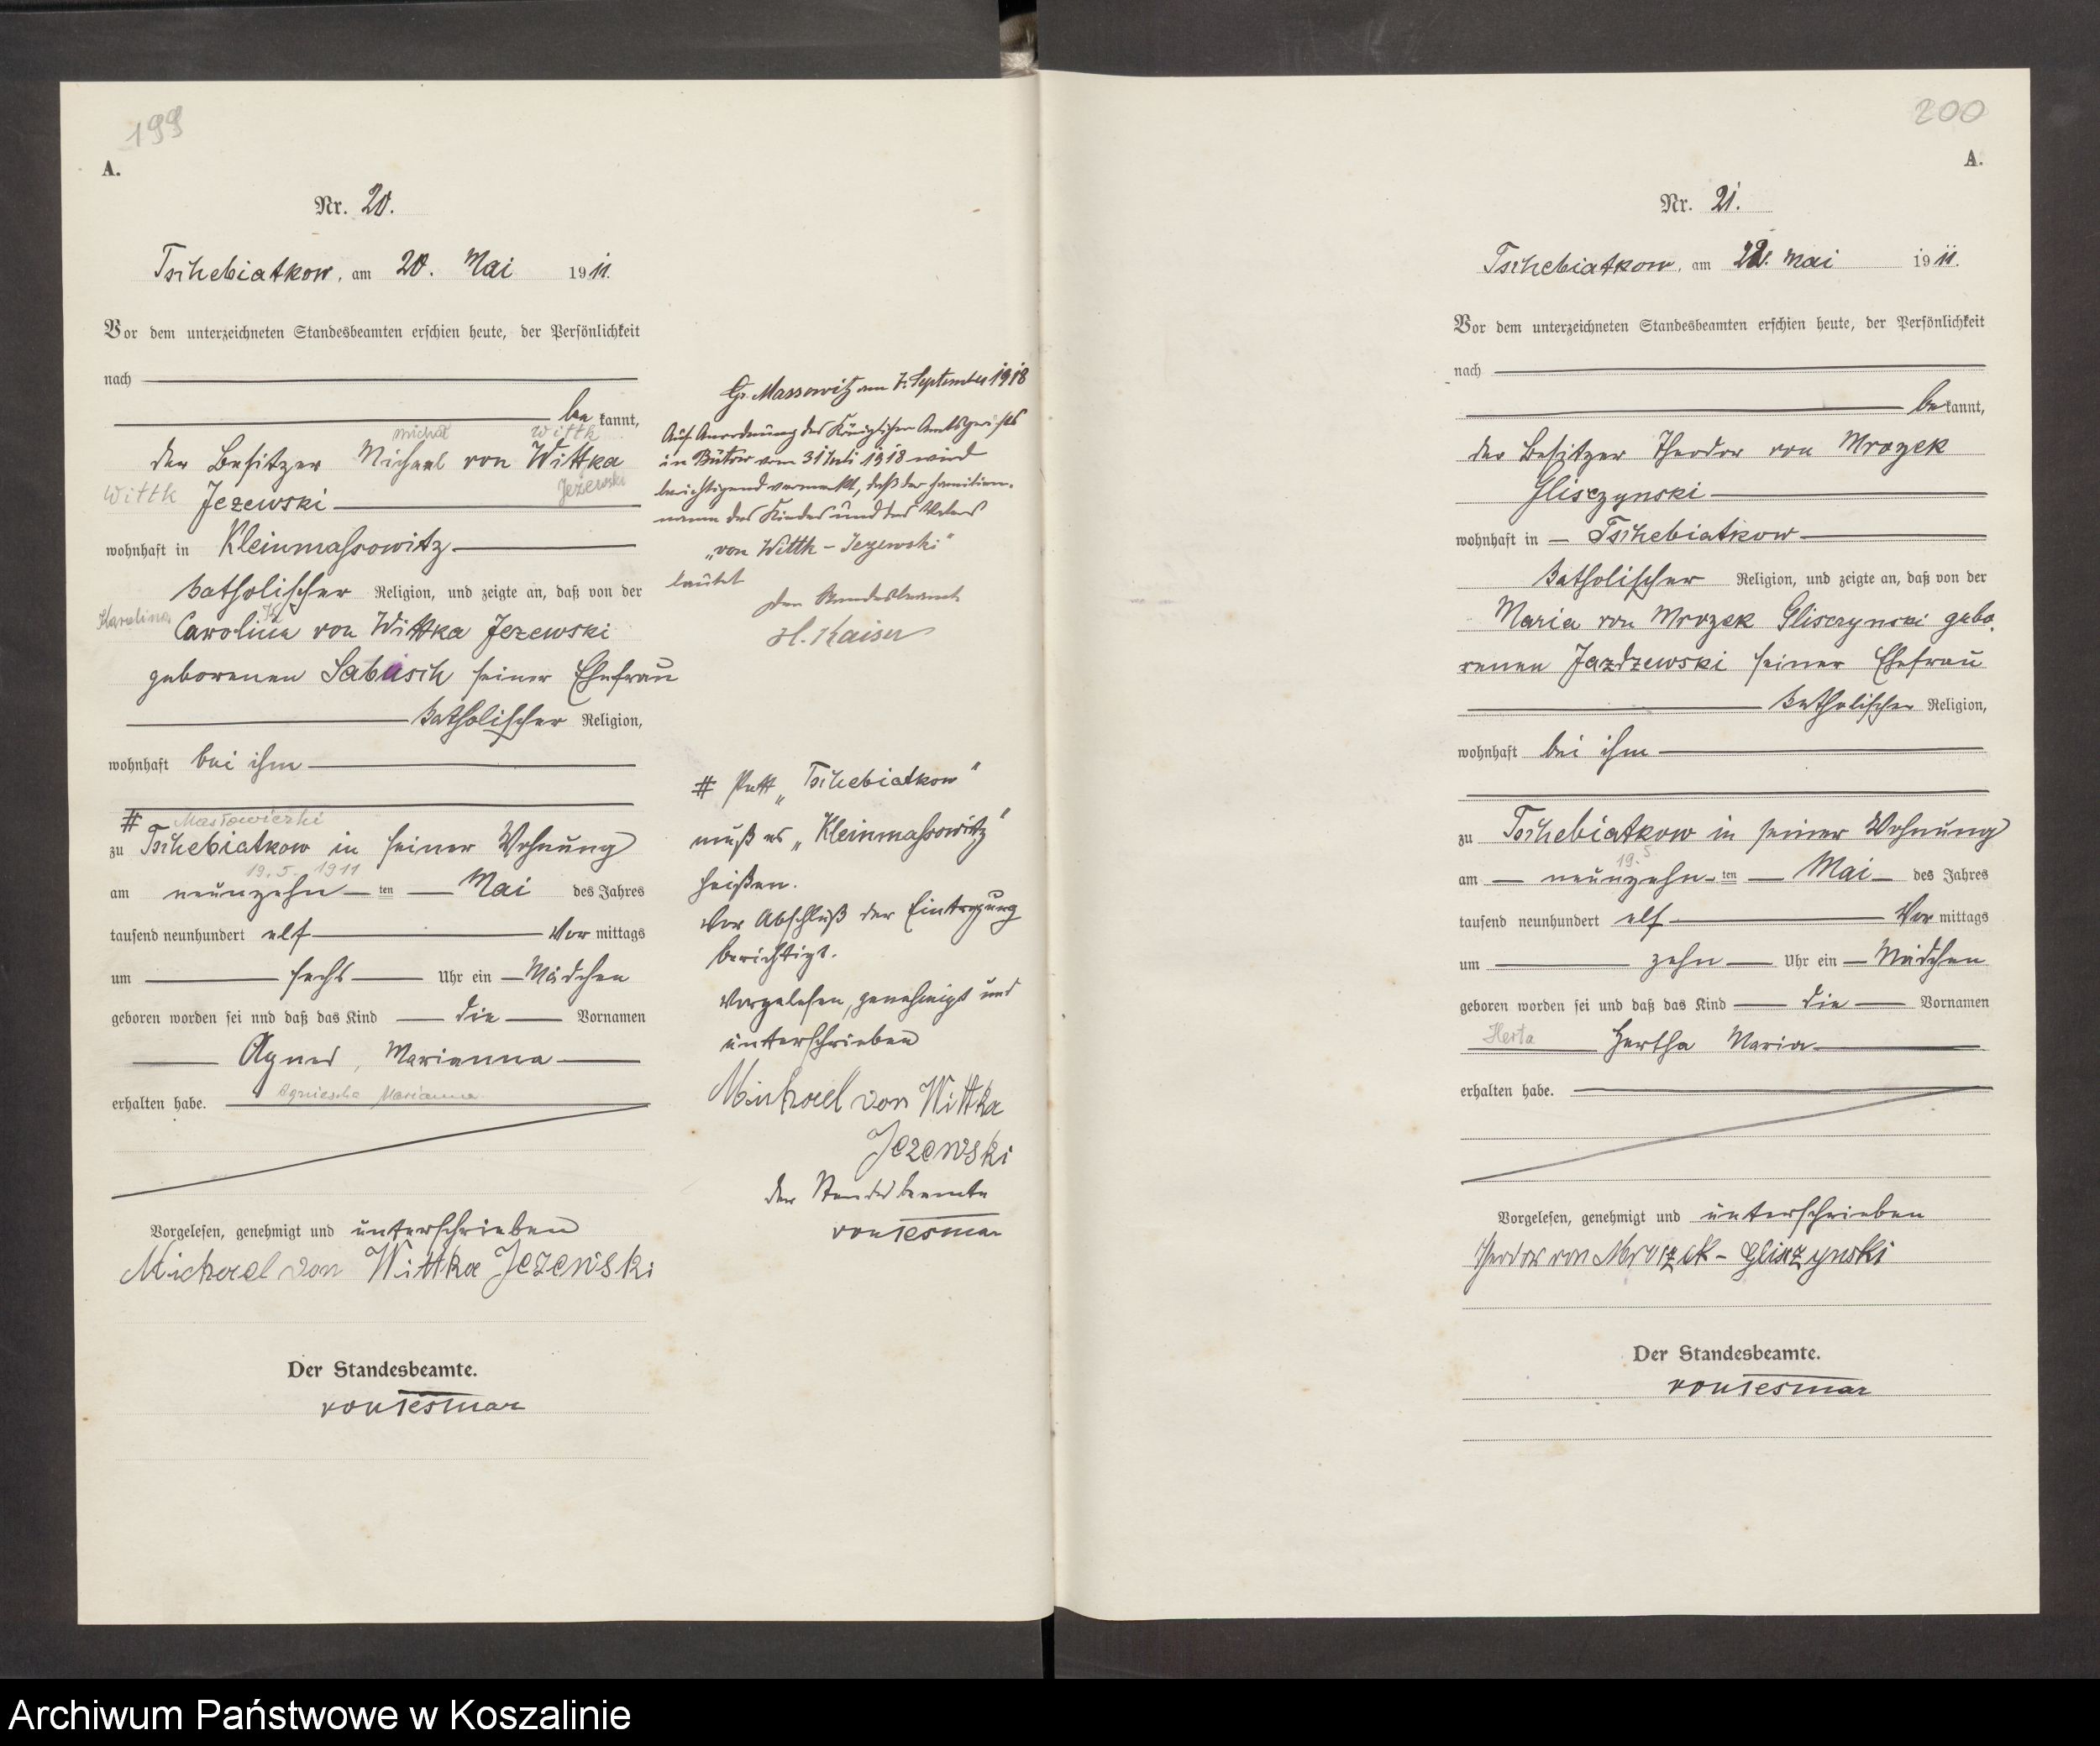 199
A.
Nr. 20.
Tschebiatkow, am 20. Mai 1911.
Vor dem unterzeichneten Standesbeamten erschien heute, der Persönlichkeit
nach
be kannt,
Michał Wittk
der Besitzer Michael von Wittka
Wittk Jezewski Jeżewski
wohnhaft in Kleinmassowitz
katholischer Religion, und zeigte an, daß von der
Karolina Carolina von Wittka Jezewski
geborenen Labusch seiner Ehefrau
katholischer Religion,
wohnhaft bei ihm
# Masłowiczki
zu Tschebiatkow in seiner Wohnung
19.5. 1911
am neunzehn ten Mai des Jahres
tausend neunhundert elf Vor mittags
um sechs Uhr ein Mädchen
geboren worden sei und daß das Kind die Vornamen
Agnes, Marianna
Agnieszka Marianna
erhalten habe.
Vorgelesen, genehmigt und unterschrieben
Michael von Wittka Jezewski
Der Standesbeamte.
von Tesmar
Gr. Massowitz am 7. September 1918
Auf Anordnung des Königlichen Amtsgerichts
in Bütow vom 31 Juli 1918 wird
berichtigend vermerkt, daß der Familien-
name des Kindes und des Vaters
„von Wittk - Jezewski"
lautet
Der Standesbeamte
H. Kaiser
# Statt „Tschebiatkow"
muß es „Kleinmassowitz"
heißen.
Vor Abschluß der Eintragung
berichtigt.
Vorgelesen, genehmigt und
unterschrieben
Michael von Wittka
Jezewski
Der Standesbeamte
von Tesmar
200
A.
Nr. 21.
Tschebiatkow, am 22. Mai 1911.
Vor dem unterzeichneten Standesbeamten erschien heute, der Persönlichkeit
nach
be kannt,
der Besitzer Theodor von Mrozek
Glisczynski
wohnhaft in Tschebiatkow
katholischer Religion, und zeigte an, daß von der
Maria von Mrozek Glisczynski gebo
renen Jazdzewski seiner Ehefrau
katholischer Religion,
wohnhaft bei ihm
zu Tschebiatkow in seiner Wohnung
19.5
am neunzehn ten Mai des Jahres
tausend neunhundert elf Vor mittags
um zehn Uhr ein Mädchen
geboren worden sei und daß das Kind die Vornamen
Herta Hertha Maria
erhalten habe.
Vorgelesen, genehmigt und unterschrieben
Theodor von Mrozek - Glisczynski
Der Standesbeamte.
von Tesmar
Archiwum Państwowe w Koszalinie